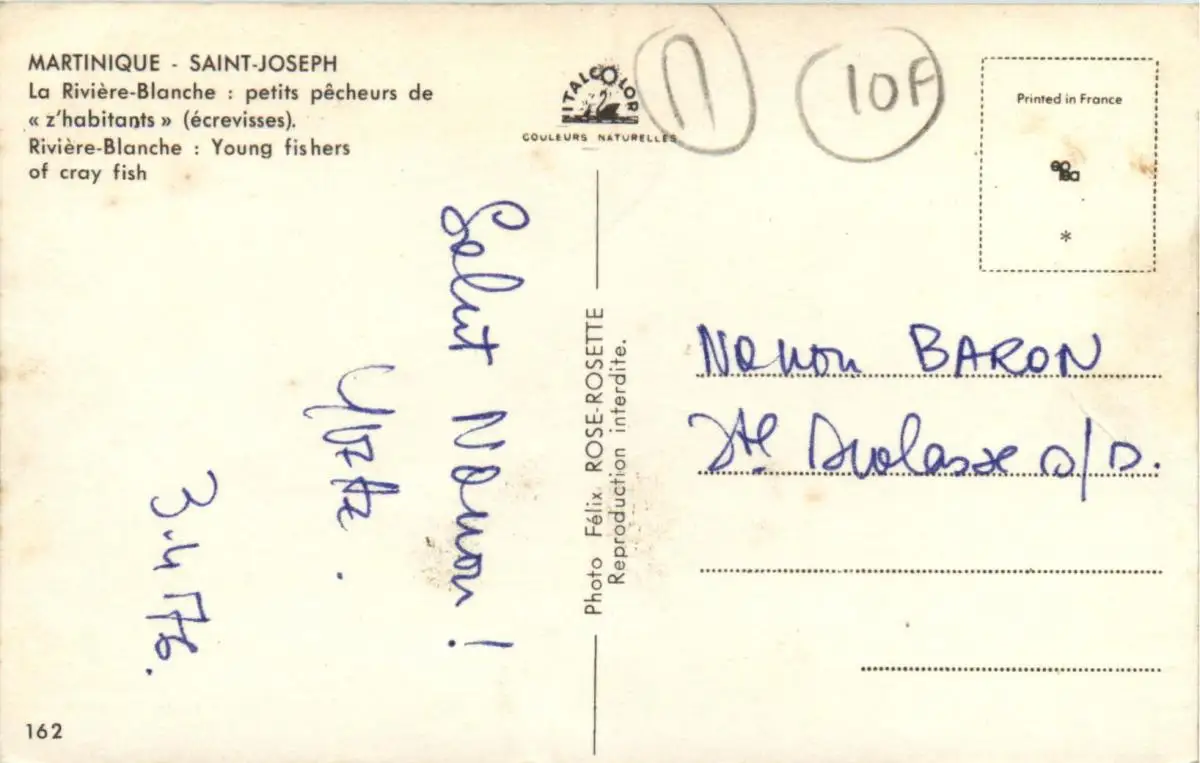 MARTINIQUE - SAINT-JOSEPH
La Rivière-Blanche : petits pêcheurs de
« z'habitants » (écrevisses).
Rivière-Blanche : Young fishers
of cray fish
ITALCOLOR
COULEURS NATURELLES
10F
Printed in France
*
Salut Nanon !
3.4.76.
Photo Félix ROSE-ROSETTE
Reproduction interdite.
Nanon BARON
162